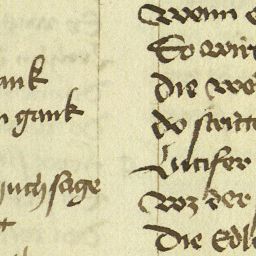 ank
gank
uch sage
Wenn
So wir
Die we
do stritt
Lucifer
Wz der
Die Edl